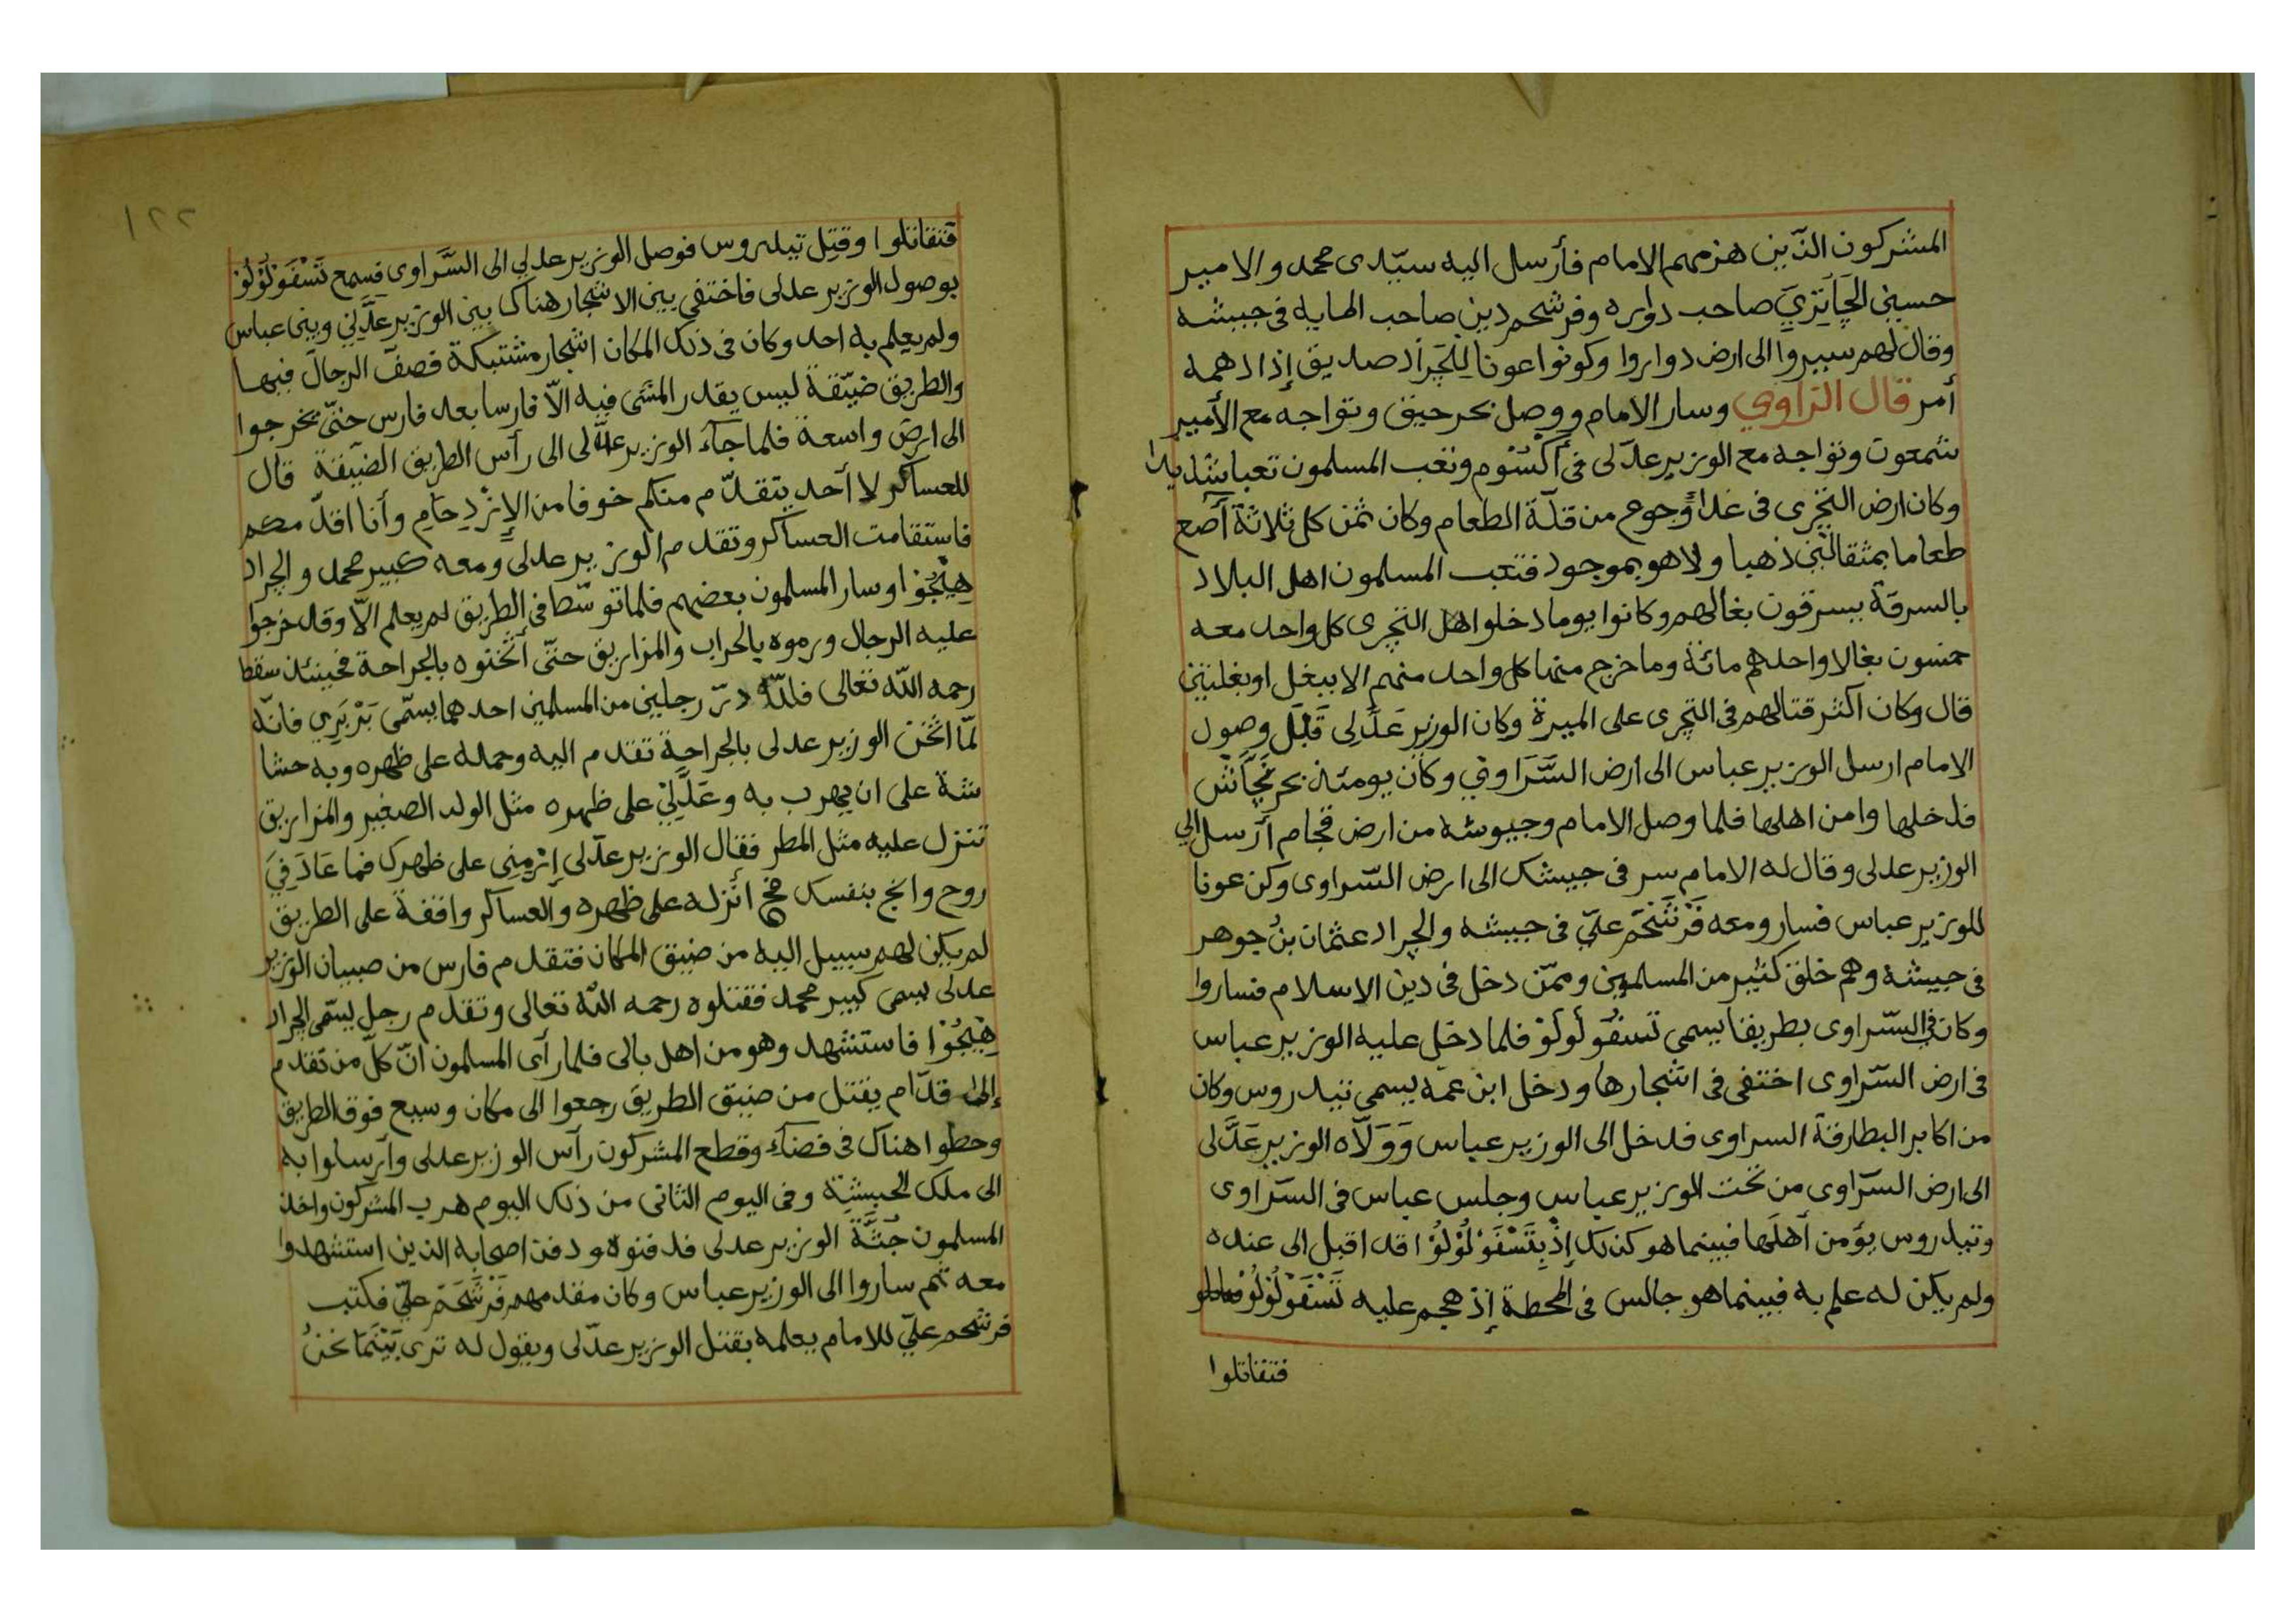 المشركون الذّين هزمهم الامام فأرسل اليه سيّدى محمد والامير
حسين الچاتري صاحب دواره وفرشحم دين صاحب الهايه فى جيشه
وقال لهم سيروا الى ارض دواروا وكونوا عونا للجراد صديق إذا دهمه
أمر قال الراوي وسار الامام ووصل بحر حيق وتواجه مع الأمير
شمعون وتواجه مع الوزير عدّلى فى أكسُوم وتعب المسلمون تعبا شديدا
وكان ارض التجرى فى غداً وجوع من قلّة الطعام وكان ثمن كل ثلاثة آصع
طعاما بمثقالين ذهبا ولا هو بموجود فتعب المسلمون اهل البلاد
بالسرقة يسرقون بغالهم وكانوا يوما دخلوا اهل التجرى كل واحد معه
خمسون بغالا واحدهم مائة وما خرج منها كل واحد منهم الا ببغل او بغلتين
قال وكان اكثر قتالهم فى التجرى على الميرة وكان الوزير عَدَّلِى قَبْلَ وصول
الامام ارسل الوزير عباس الى ارض السَّرَاوى وكان يومئذ بحر نجاش
فدخلها وامن اهلها فلما وصل الامام وجيوشه من ارض قجام أرسل الي
الوزير عدلى وقال له الامام سر فى جيشك الى ارض السّراوى وكن عونا
للوزير عباس فسار ومعه فَرْشَحَم عليّ فى جيشه والجراد عثمان بن جوهر
فى جيشه وهم خلق كثير من المسلمين وممّن دخل فى دين الاسلام فساروا
وكان في السّراوى بطريقا يسمى تسفُو لُولُوْ فلما دخل عليه الوزير عباس
فى ارض السّراوى اختفى فى اشجارها ودخل ابن عمّه يسمى تيدروس وكان
من اكابر البطارقة السراوى فدخل الى الوزير عباس وَوَلّاه الوزير عَدَّلى
الى ارض السّراوى من تحت الوزير عباس وجلس عباس فى السّراوى
وتيدروس يؤمن أهلَها فبينما هو كذلك إذْ بِتَسْفَوْ لُوْلُوْا قد اقبل الى عنده
ولم يكن له علم به فبينما هو جالس فى المحطة إذ هجم عليه تَسْفَوْ لُوْلُوْ
فتقاتلوا
١٢٢
فتقاتلوا وقُتِل تيدروس فوصل الوزير عدلي الى السَّراوى فسمع تَسْفَوْ لُوْلُوْ
بوصول الوزير عدلى فاختفى بين الاشجار هناك بين الوزير عَدَّلِي وبين عباس
ولم يعلم به احد وكان فى ذلك المكان اشجار مشتبكة فصفّ الرجالَ فيها
والطريق ضيّقة ليس يقدر المشى فيه الّا فارسا بعد فارس حتّى يخرجوا
الى ارض واسعة فلما جآء الوزير عدّلى الى رأس الطريق الضيقة قال
للعساكر لا أحد يتقدّم منكم خوفا من الإزْدِحَامِ وأنا اقدّمكم
فاستقامت العساكر وتقدم الوزير عدلى ومعه كبير محمد والجراد
هِيْجُوْا وسار المسلمون بعضهم فلما توسّطا فى الطريق لم يعلم الّا وقد خرجوا
عليه الرجال ورموه بالحراب والمزاريق حتّى أثخنوه بالجراحة فحينئذ سقط
رحمه اللّه تعالى فللّه درّ رجلين من المسلمين احدهما يسمّى بَرْبَرِي فانّه
لمّا اثخن الوزير عدلى بالجراحة تقدم اليه وحمله على ظهره وبه حشا
شة على ان يهرب به وعَدَّلِيْ على ظهره مثل الولد الصغير والمزاريق
تنزل عليه مثل المطر فقال الوزير عدّلى إرْمِنِى على ظهرك فما عَادَ فِيَ
روح وانج بنفسك أنزله على ظهره والعساكر واقفة على الطريق
لم يكن لهم سبيل اليه من ضيق المكان فتقدم فارس من صبيان الوزير
عدلى يسمى كبير محمد فقتلوه رحمه اللّه تعالى وتقدم رجل يسمّى الجراد
هِيْجُوْا فاستشهد وهو من اهل بالى فلما رآى المسلمون انّ كلّ من تقدم
إلى قدّام يقتل من ضيق الطريق رجعوا الى مكان وسيع فوق الطريق
وحطوا هناك فى فضاء وقطع المشركون رآس الوزير عدلى وآرسلوا به
الى ملك الحبشة وفى اليوم الثانى من ذلك اليوم هرب المشركون واخذ
المسلمون جُثَّة الوزير عدلى فدفنوه ودفن اصحابه الذين استشهدوا
معه ثم ساروا الى الوزير عباس وكان مقدمهم فَرْشَحَم عليّ فكتب
فرشحم عليّ للامام يعلمه بقتل الوزير عدّلى ويقول له ترى بَيْنَمَا نحنُ